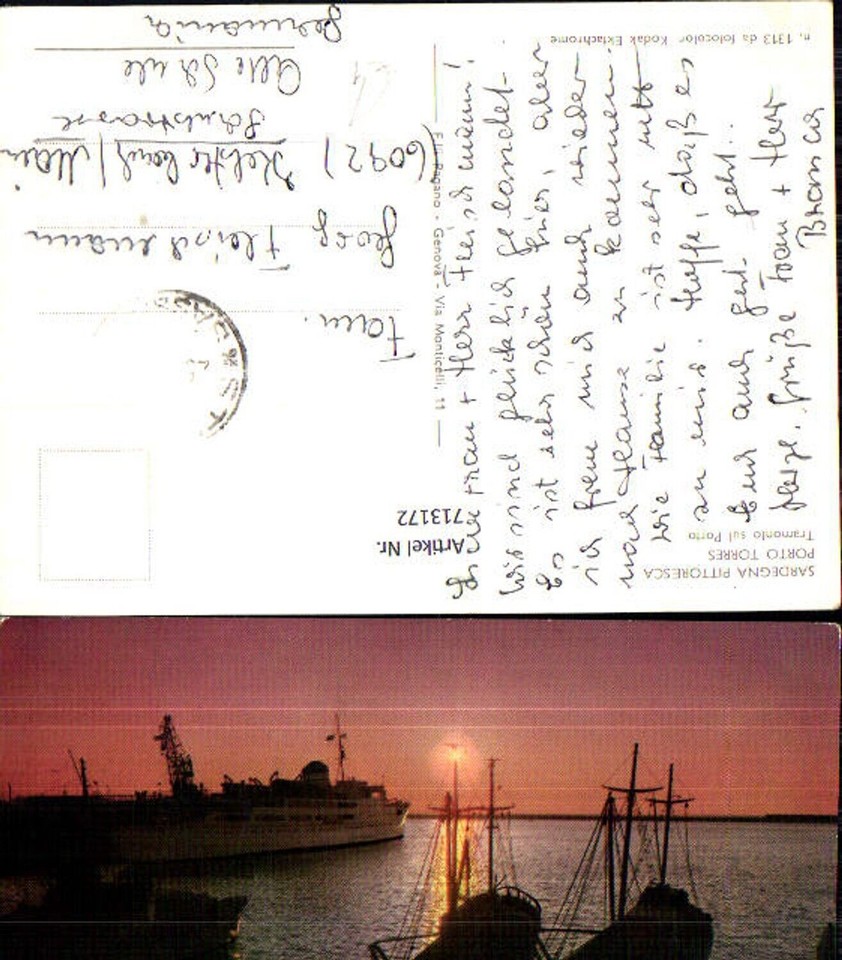 SARDEGNA PITTORESCA
PORTO TORRES
Tramonto sul Porto
Frau + Herr Fleischmann!
Wir sind glücklich gelandet.
Es ist sehr schön hier, aber
ich freue mich auch wieder
nach Hause zu kommen.
Die Familie ist sehr nett
zu mir. Hoffe, daß es
Euch auch gut geht..
Herzl. Grüße Frau + Herr
Artikel Nr.
7113172
F.lli Pagano - Genova - Via Monticelli, 11
Fam.
Georg Fleischmann
(6092) Kelsterbach/Main
Schulstrasse
Alte Schule
Germania
n. 1313 da fotocolor Kodak Ektachrome